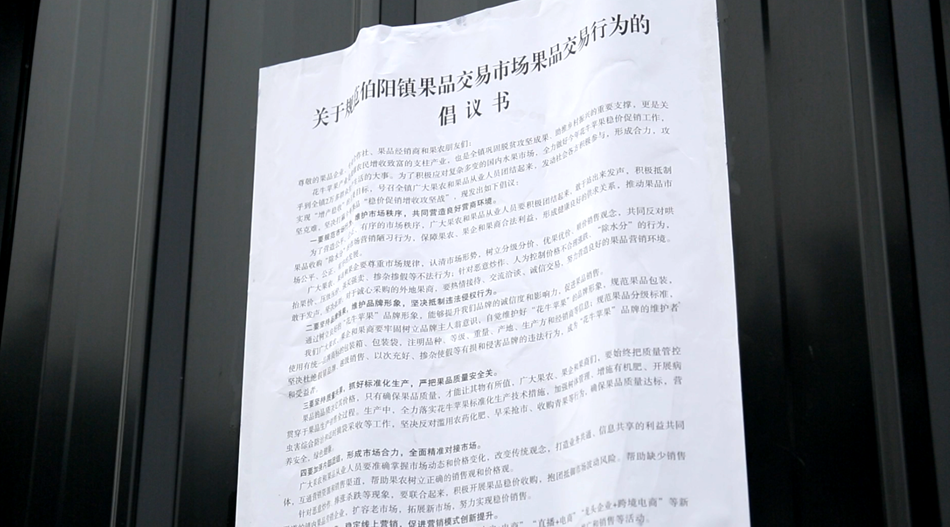 关于规范伯阳镇果品交易市场果品交易行为的
倡议书
尊敬的果品企业、 作社、果品经销商和果农朋友们：
花牛苹果产 农民增收致富的支柱产业，也是全镇巩固脱贫攻坚成果、助推乡村振兴的重要支撑，更是关
乎到全镇2万多 生活的大事。为了积极应对复杂多变的国内水果市场，全力做好今年花牛苹果稳价促销工作，
实现“增产稳收”的目标，号召全镇广大果农和果品从业人员团结起来，发动社会各方积极参与，形成合力，攻
坚克难，坚决打赢 “稳价促销增收攻坚战”，现发出如下倡议：
一要规范市场 维护市场秩序，共同营造良好营商环境。
为了营造公平、公正、有序的市场秩序，广大果农和果品从业人员要积极团结起来，敢于站出来发声，积极抵制
果品收购“除水分”等市场营销陋习行为，保障果农、果企和果商合法利益，形成健康良好的供求关系，推动果品市
场公平、公正、 发展。
广大果农、 和果企要尊重市场规律，认清市场形势，树立分级分价、优果优价 销售观念，共同反对哄
抬果价、压级压价、 卖、掺杂掺假等不法行为；针对恶意炒作、人为控制价格不合理 、“除水分”的行为，
敢于发声、 对于诚心采购的外地果商，要热情接待、交流洽谈、诚信交易，努力营造良好的果品营销环境。
二要坚持品牌 维护品牌形象，坚决抵制违法侵权行为。
通过树立良好的“花牛苹果”品牌形象，能够提升我们品牌的诚信度和影响力，促进果品销售。
我们广大果农、果企和果商要牢固树立品牌主人翁意识，自觉维护好“花牛苹果”的品牌形象，规范果品包装，
使用有统一品牌商标的包装箱、包装袋，注明品种、等级、重量、产地、生产方和经销商等信息；规范果品分级标准，
坚决杜绝假冒品牌、 销售、以次充好、掺杂使假等有损和侵害品牌的违法行为，成为“花牛苹果”品牌的维护者
和受益者。
三要坚持质量 ，抓好标准化生产，严把果品质量安全关。
果品的品质决定价格，只有确保果品质量，才能让其物有所值。广大果农、果企和果商们，要始终把质量管控
贯穿于果品生产 全过程。生产中，全力落实花牛苹果标准化生产技术措施，加强树体管理、增施有机肥、开展病
虫害综合防治和适期摘袋采收等工作，坚决反对滥用农药化肥、早采抢市、收购青果等行为，确保果品质量达标，营
养安全、绿色健康。
四要加强 ，形成市场合力，全面精准对接市场。
广大果农和果品从业人员要准确掌握市场动态和价格变化，改变传统观念，打造业务共通、信息共享的利益共同
体，互通营销信息和销售渠道，帮助果农树立正确的销售观和价格观。
针对恶意炒作、 涨杀跌等现象，要联合起来，积极开展果品稳价收购，抱团抵御市场波动风险。帮助缺少销售
企业，扩容老市场，拓展新市场，努力实现稳价销售。
稳定线上营销，促进营销模式创新提升。
电商”“直播+电商”“龙头企业+跨境电商”等新
和销售等活动。